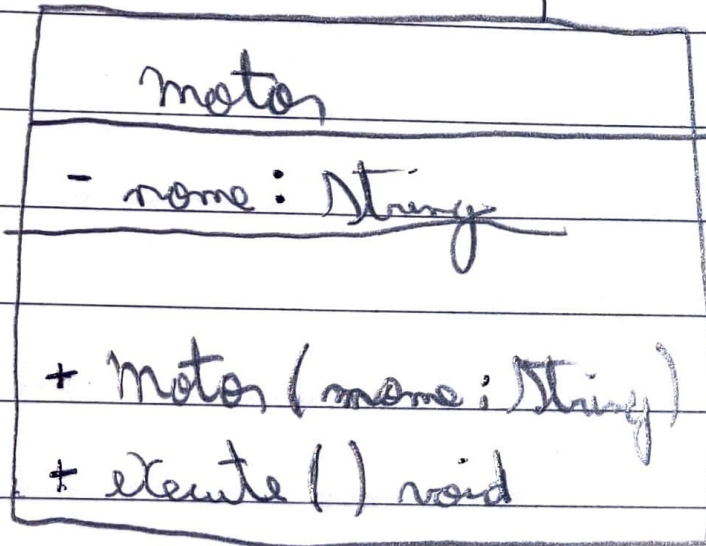 Motor
- nome: String
+ Motor (nome: String)
+ execute () void